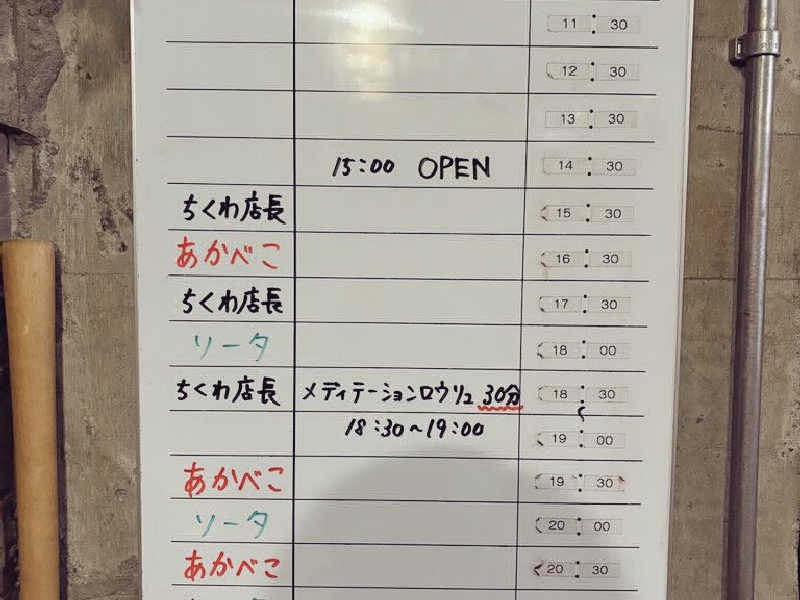 11:30
12:30
13:30
15:00 OPEN 14:30
ちくわ店長 15:30
あかべこ 16:30
ちくわ店長 17:30
ソータ 18:00
ちくわ店長 メディテーションロウリュ 30分 18:30
18:30~19:00 19:00
あかべこ 19:30
ソータ 20:00
あかべこ 20:30